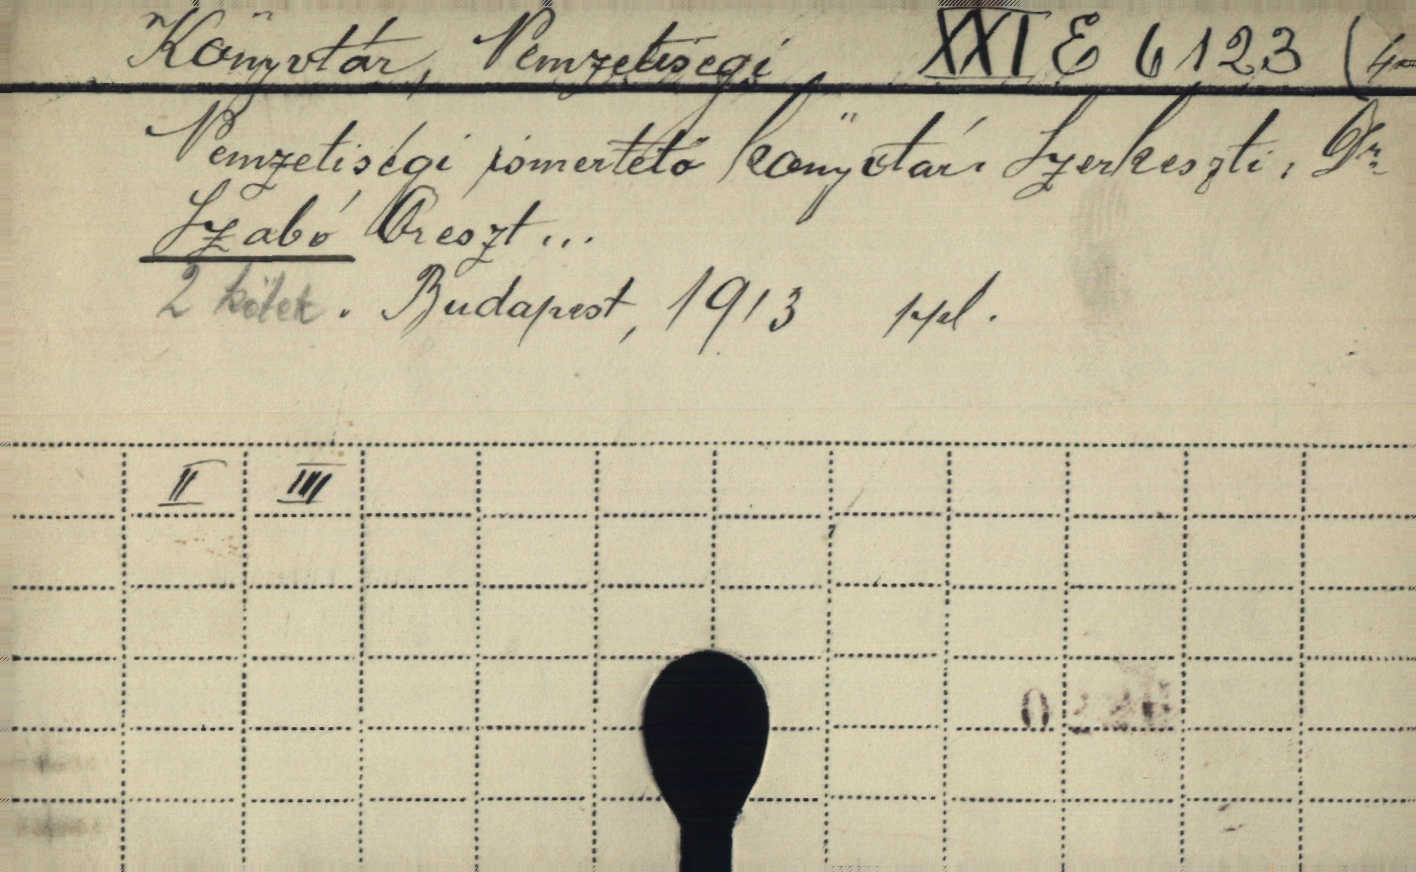 Könyvtár, Nemzetiségi XXI E 6123 (4=
Nemzetiségi ismertető könyvtár. Szerkeszti, Dr.
Szabó Oreszt...
2 kötek. Budapest, 1913
II III